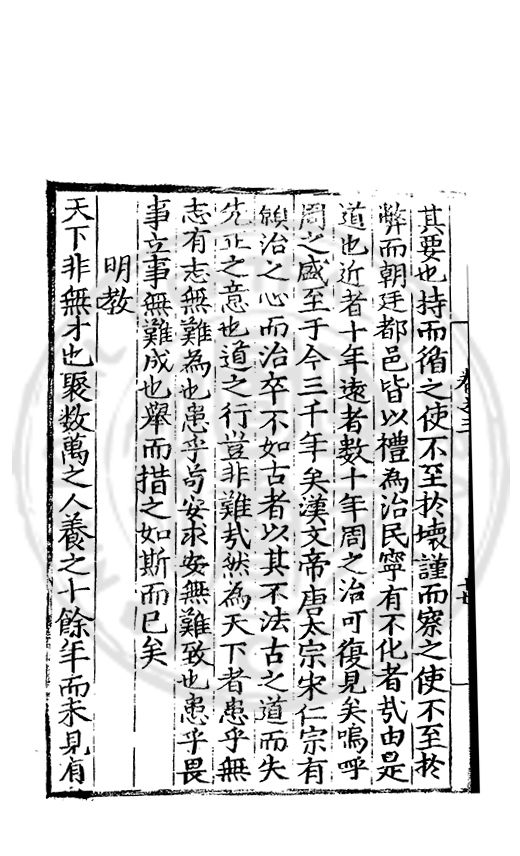 其要也持而循之使不至於壞謹而察之使不至於
弊而朝廷都邑皆以禮為治民寧有不化者㢤由是
道也近者十年遠者數十年周之治可復見矣嗚呼
周之盛至于今三千年矣漢文帝唐太宗宋仁宗有
願治之心而治卒不如古者以其不法古之道而失
先王之意也道之行豈非難㢤然為天下者患乎無
志有志無難為也患乎苟安求安無難致也患乎畏
事立事無難成也舉而措之如斯而已矣
明教
天下非無才也聚數萬之人養之十餘年而未見有